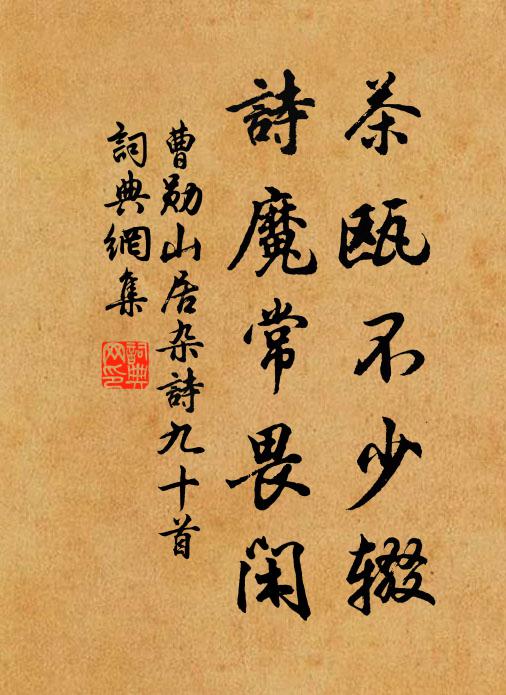 茶瓯不少辍
詩魔常畏闲
曹勛山居杂詩九十首
詞典網集
詞典网印